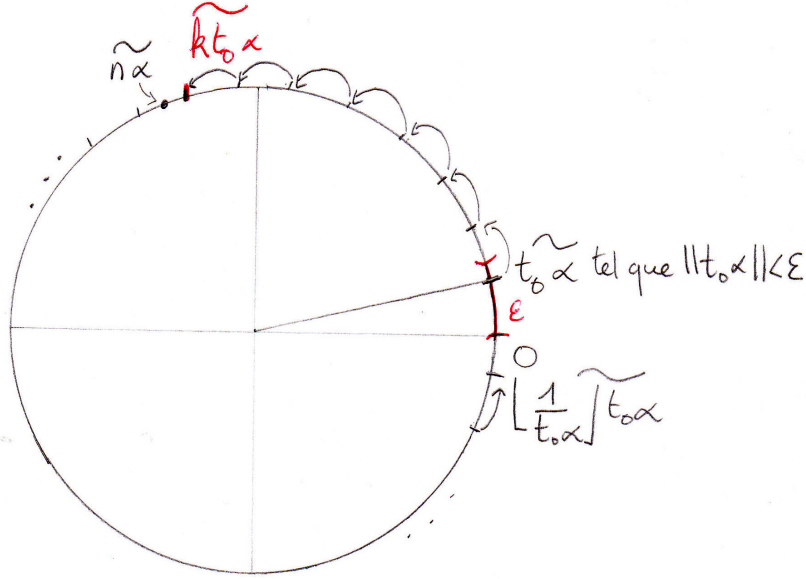 k̃t₀α
ñα
t̃₀α tel que ||t₀α||<ε
ε
0
⌊1/t₀α⌋t̃₀α